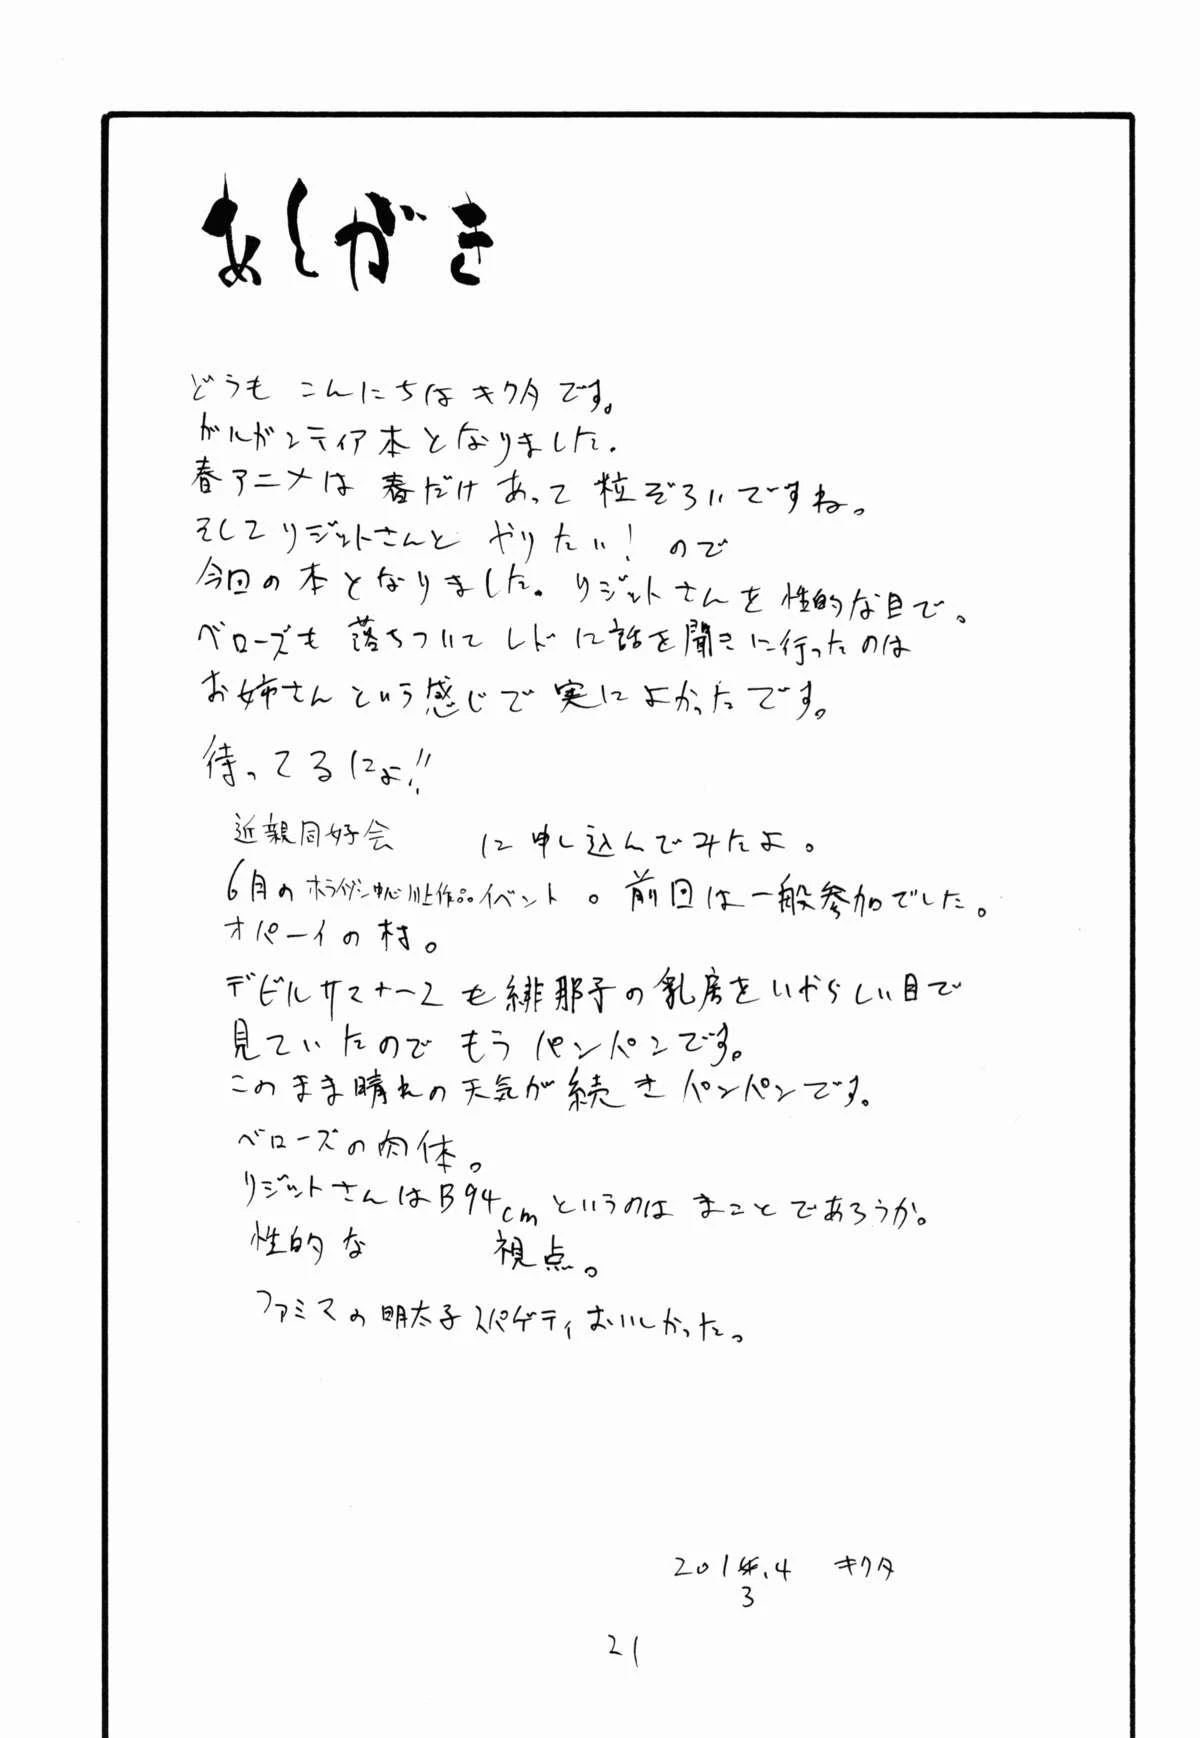 あとがき
どうも こんにちは キクタです。
ガルガンティア本となりました.
春アニメは 春だけあって 粒ぞろいですね。
そしてリジットさんと やりたい! ので
今回の本となりました. リジットさんを性的な目で。
ベローズも 落ちついてレドに話を聞きに行ったのは
お姉さんという感じで実によかったです。
待ってるにょ!!
近親同好会 に申し込んでみたよ。
6月のホライゾン中心川上作品イベント。前回は一般参加でした。
オパーイの村。
デビルサマナー2も緋那子の乳房をいやらしい目で
見ていたので もう パンパンです。
このまま晴れの天気が続きパンパンです。
ベローズの肉体。
リジットさんはB94cmというのは まことであろうか。
性的な 視点。
ファミマの明太子スパゲティおいしかった。
2013.4 キクタ
21